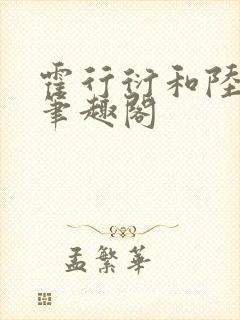 霍行衍和陸
筆趣閣
孟繁華